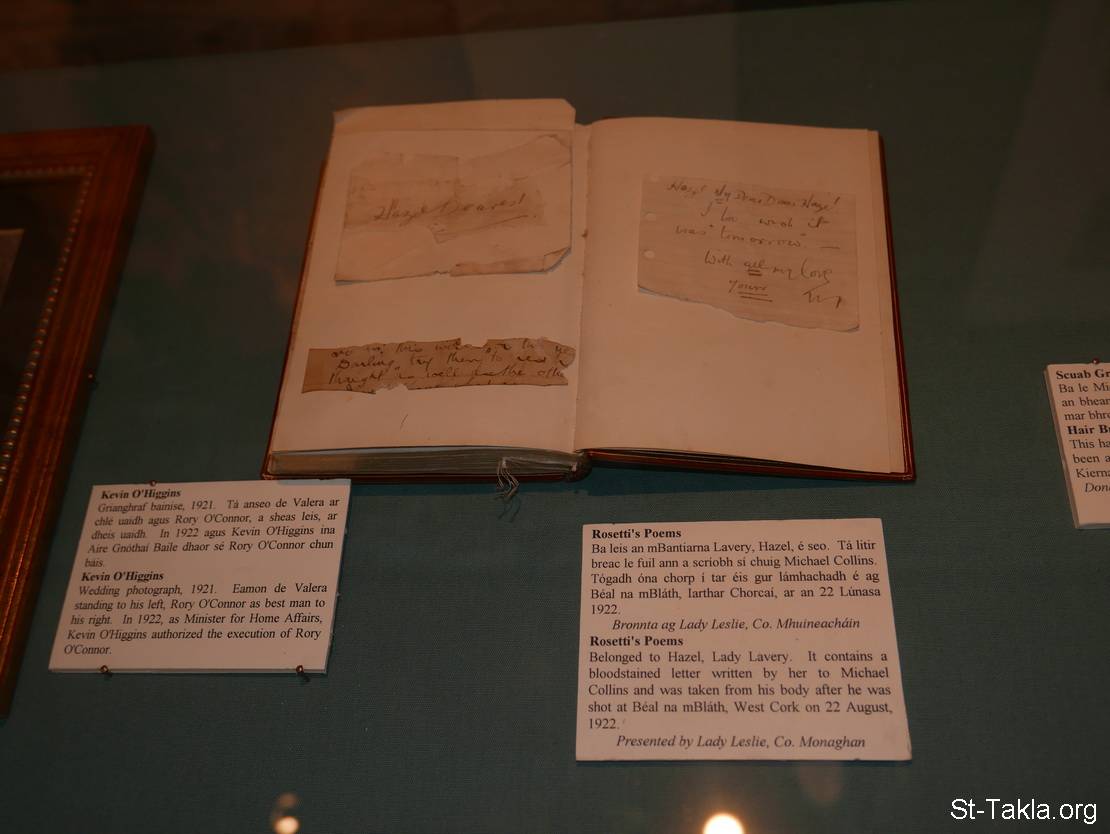 Hazel Dearest
Hazel My Dear Dear Hazel
I too wish it
was "tomorrow" —
With all my love
Yours
Darling try them to
thought as well as the
Kevin O'Higgins
Grianghraf bainise, 1921. Tá anseo de Valera ar
chlé uaidh agus Rory O'Connor, a sheas leis, ar
dheis uaidh. In 1922 agus Kevin O'Higgins ina
Aire Gnóthaí Baile dhaor sé Rory O'Connor chun
báis.
Kevin O'Higgins
Wedding photograph, 1921. Eamon de Valera
standing to his left, Rory O'Connor as best man to
his right. In 1922, as Minister for Home Affairs,
Kevin O'Higgins authorized the execution of Rory
O'Connor.
Rosetti's Poems
Ba leis an mBantiarna Lavery, Hazel, é seo. Tá litir
breac le fuil ann a scríobh sí chuig Michael Collins.
Tógadh óna chorp í tar éis gur lámhachadh é ag
Béal na mBláth, Iarthar Chorcaí, ar an 22 Lúnasa
1922.
Bronnta ag Lady Leslie, Co. Mhuineacháin
Rosetti's Poems
Belonged to Hazel, Lady Lavery. It contains a
bloodstained letter written by her to Michael
Collins and was taken from his body after he was
shot at Béal na mBláth, West Cork on 22 August,
1922.
Presented by Lady Leslie, Co. Monaghan
Scuab Gr
Ba le Mi
an bhear
mar bhr
Hair B
This ha
been a
Kierna
Dona
St-Takla.org